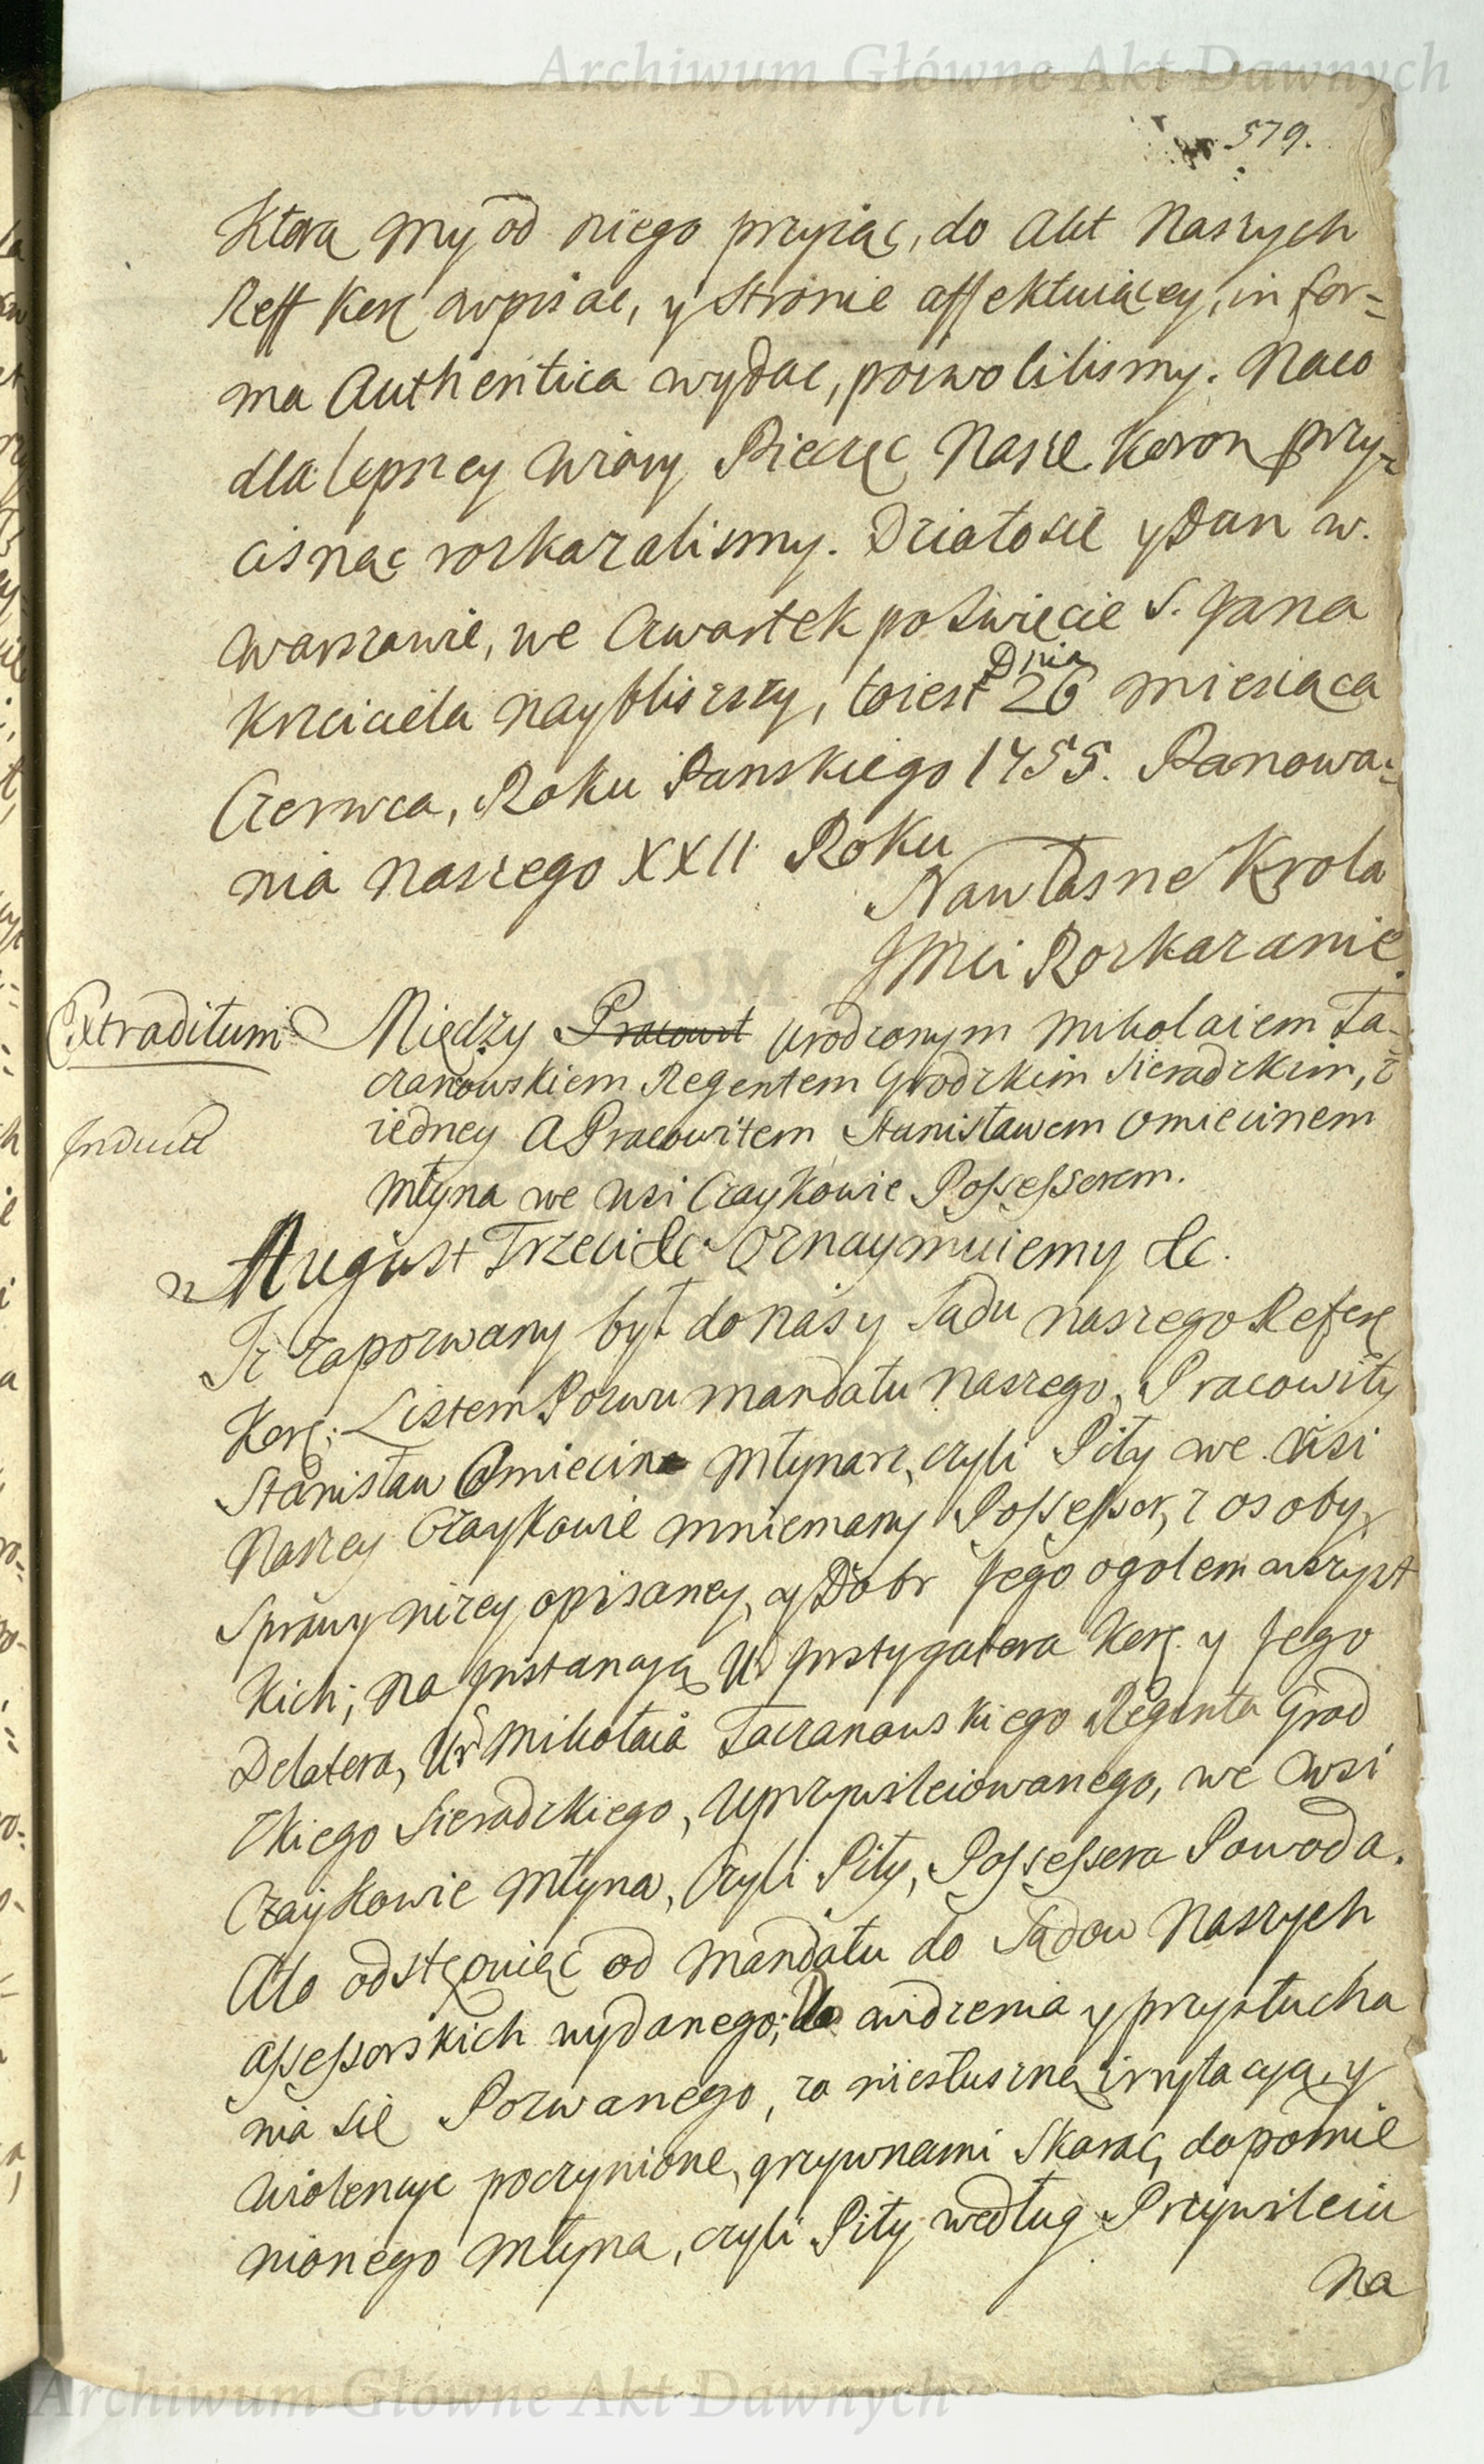 Archiwum Główne Akt Dawnych
579.
Ktorą my od niego przyiąc, do Akt Naszych
Reff Korȩ wpisac, y stronie affektuiącey, in for=
ma Authentica wydac, pozwolilismy. Naco
dla lepszey wiary Pieczęc Naszę Koron przy=
cisnąc roskazalismy. Działosię y Dan w.
Warszawie, we Czwartek po Swięcie S. Jana
Krzciciela nayblizszy, toiest Dnia 26 miesiąca
Czerwca, Roku Panskiego 1755. Panowa=
nia naszego XXII Roku
Nawłasne Krola
JMci Rozkazanie.
Extraditum
Między Pracowit Urodzonym Mikolaiem Ta-
czanowskiem Regentem Grodzkim Sieradzkim, z
iedney A Pracowitem Stanisławem Omiecinem
Młyna we wsi Czaykowie Possessorem.
Induct
August Trzeci &c Oznaymuiemy &c.
Iz zapozwany był do nas y Sadu naszego Referȩ
Korȩ: Listem Pozwu mandatu naszego, Pracowity
Stanisław Omiecina Młynarz, czyli Piły we wsi
Naszey Czaykowie mniemany Possessor, z osoby,
Sprawy nizey opisaney, y Dobr Jego ogolem wszyst
kich; na Instancyą Ur Instygatora Korȩ y Jego
Delatora, Ur Mikołaia Taczanowskiego Regenta Grod
zkiego Sieradzkiego, Uprzywileiowanego, we wsi
Czaykowie Młyna, czyli Piły, Possessora Powoda.
Ato odstępuiąc od mandatu do Sądow Naszych
Assessorskich wydanego; Do widzenia y przysłucha
nia się Pozwanego, za niesłuszną irrytacyą, y
wiolencye poczynione, grzywnami Skarac, dopomie
nionego Młyna, czyli Piły według Przywileiu
na
Archiwum Główne Akt Dawnych